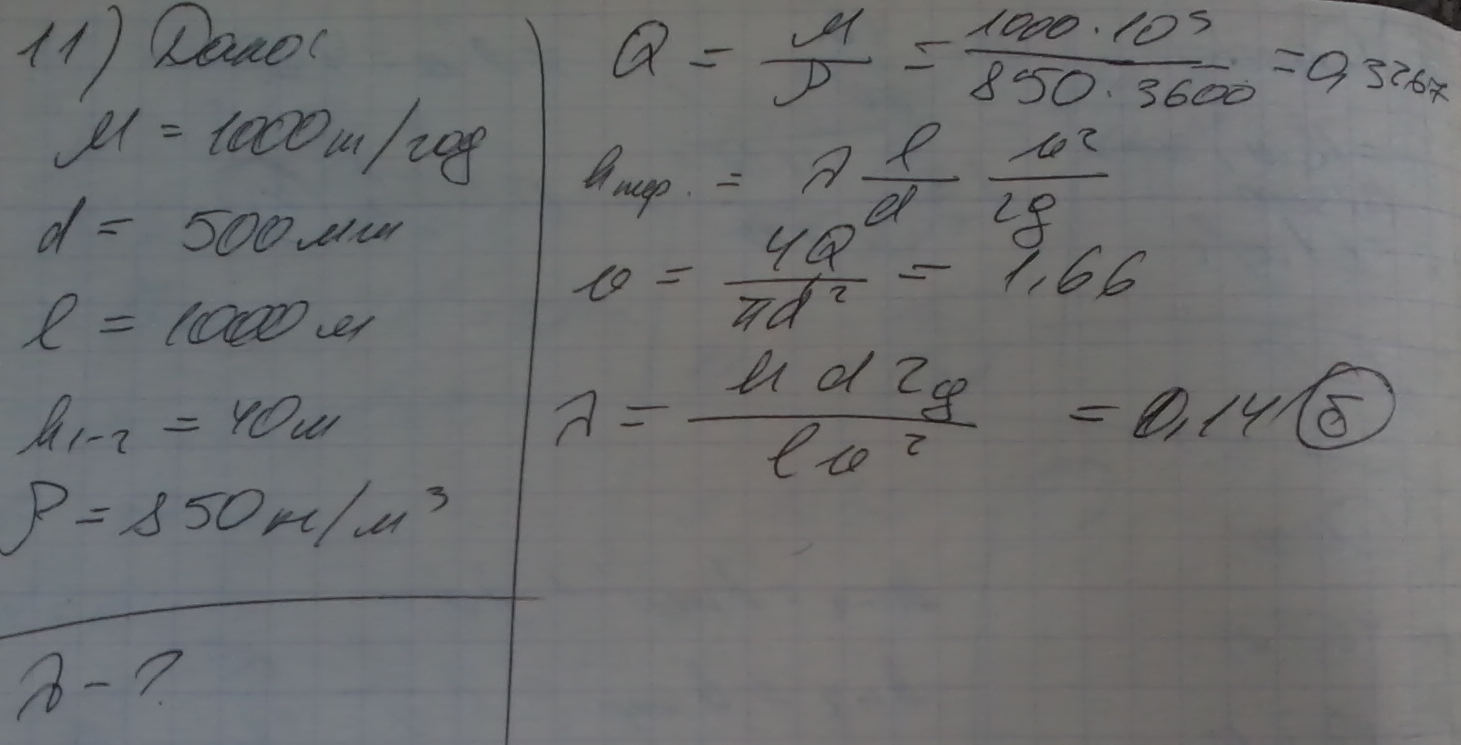 11) Дано:
M = 1000 т/год
d = 500 мм
l = 1000 м
h₁₋₂ = 40 м
ρ = 850 кг/м³
λ - ?
Q = M/ρ = 1000·10³/850·3600 = 0,3267
hтер. = λ l/d υ²/2g
υ = 4Q/πd² = 1,66
λ = h d 2g/l υ² = 0,14 б